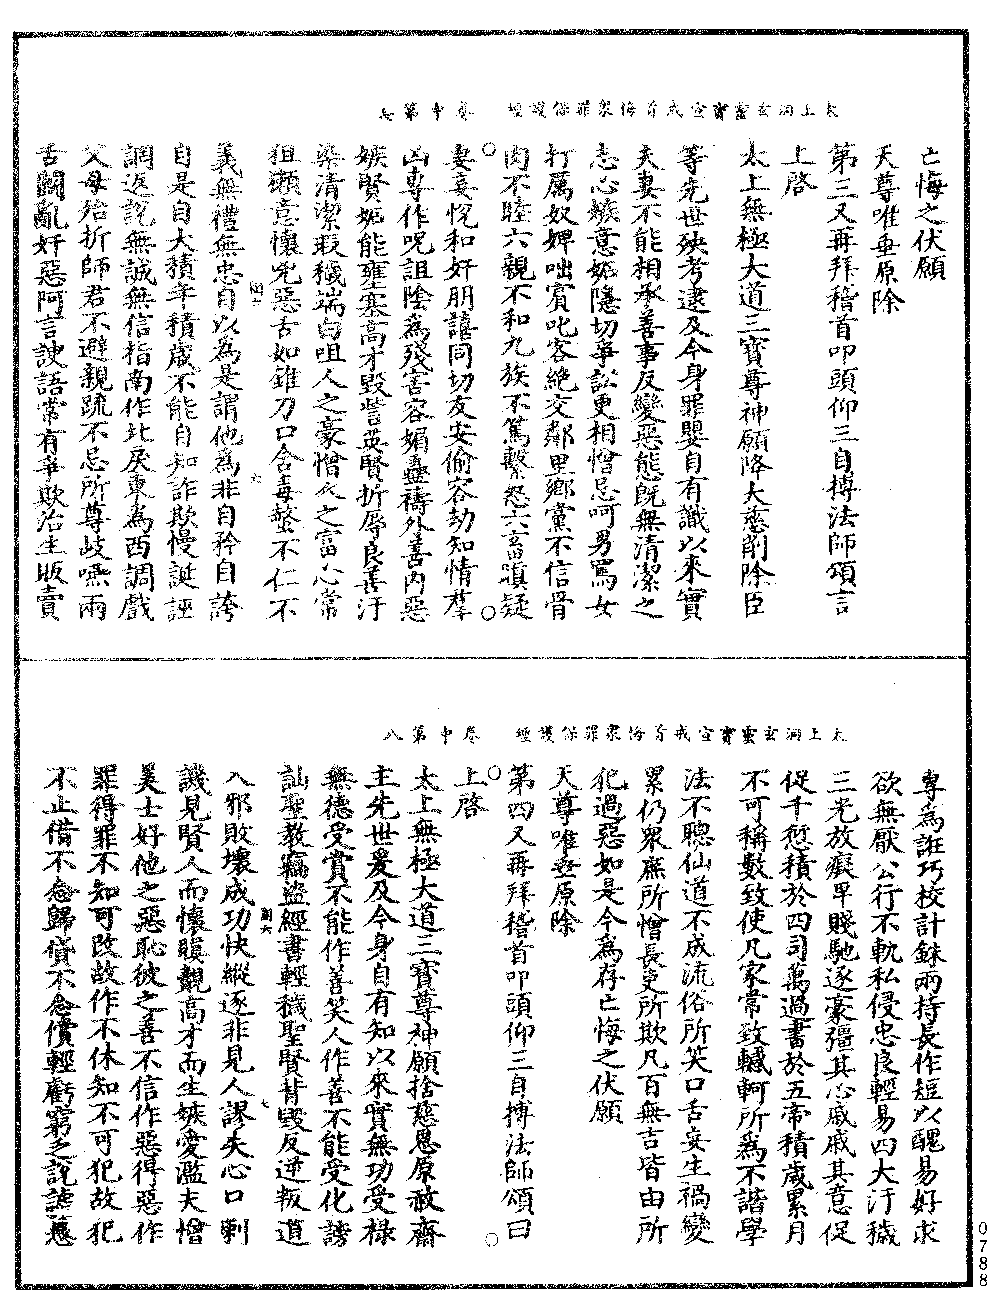 太上洞玄靈寶宣戒首悔眾罪保護經　卷中第七
亡悔之伏願
天尊唯垂原除
第三又再拜稽首叩頭仰三自摶法師頌言
上啓
太上無極大道三寶尊神願降大慈削除臣
等先世殃考逮及今身罪嬰自有識以來實
夫妻不能相承善事反變惡態旣無清潔之
志心嫉意妬隱切爭訟更相憎忌呵男罵女
打厲奴婢咄賓叱客絶交鄰里鄉黨不信骨
肉不睦六親不和九族不篤繫怨六畜嗔疑
妻妾悅和奸朋譆同切友安偷容劫知情羣
凶專作呪詛陰為殘害容媚蠱禱外善內惡
嫉賢妬能壅塞高才毀訾英賢折辱良善汙
染清潔瑕穢端白咀人之豪憎人之富心常
狙獺意懷兇惡舌如錐刀口含毒螫不仁不
義無禮無忠自以為是謂他為非自矜自誇
自是自大積年積歲不能自知詐欺慢誕誣
調返說無誠無信指南作北戾東為西調戲
父母殆折師君不避親疏不忌所尊歧嘿兩
舌鬭亂奸惡阿言諛語常有爭欺治生販賣
太上洞玄靈寶宣戒首悔眾罪保護經　卷中第八
專為誑巧校計銖兩持長作短以醜易好求
欲無厭公行不軌私侵忠良輕易四大汙穢
三光放癡早賤馳逐豪彊其心戚戚其意促
促千愆積於四司萬過書於五帝積歲累月
不可稱數致使凡家常致轗軻所為不諧學
法不聰仙道不成流俗所笑口舌妄生禍變
累仍眾庶所憎長吏所欺凡百無吉皆由所
犯過惡如是今為存亡悔之伏願
天尊唯垂原除
第四又再拜稽首叩頭仰三自摶法師頌曰
上啓
太上無極大道三寶尊神願捨慈恩原赦齋
主先世爰及今身自有知以來實無功受祿
無德受賞不能作善笑人作善不能受化謗
訕聖教竊盜經書輕穢聖賢背毀反逆叛道
八邪敗壞成功快縱逐非見人謬失心口剌
譏見賢人而懷賑覿高才而生嫉愛濫夫憎
美士好他之惡恥彼之善不信作惡得惡作
罪得罪不知可改故作不休知不可犯故犯
不止借不念歸債不念償輕虧窮之說譀
0788